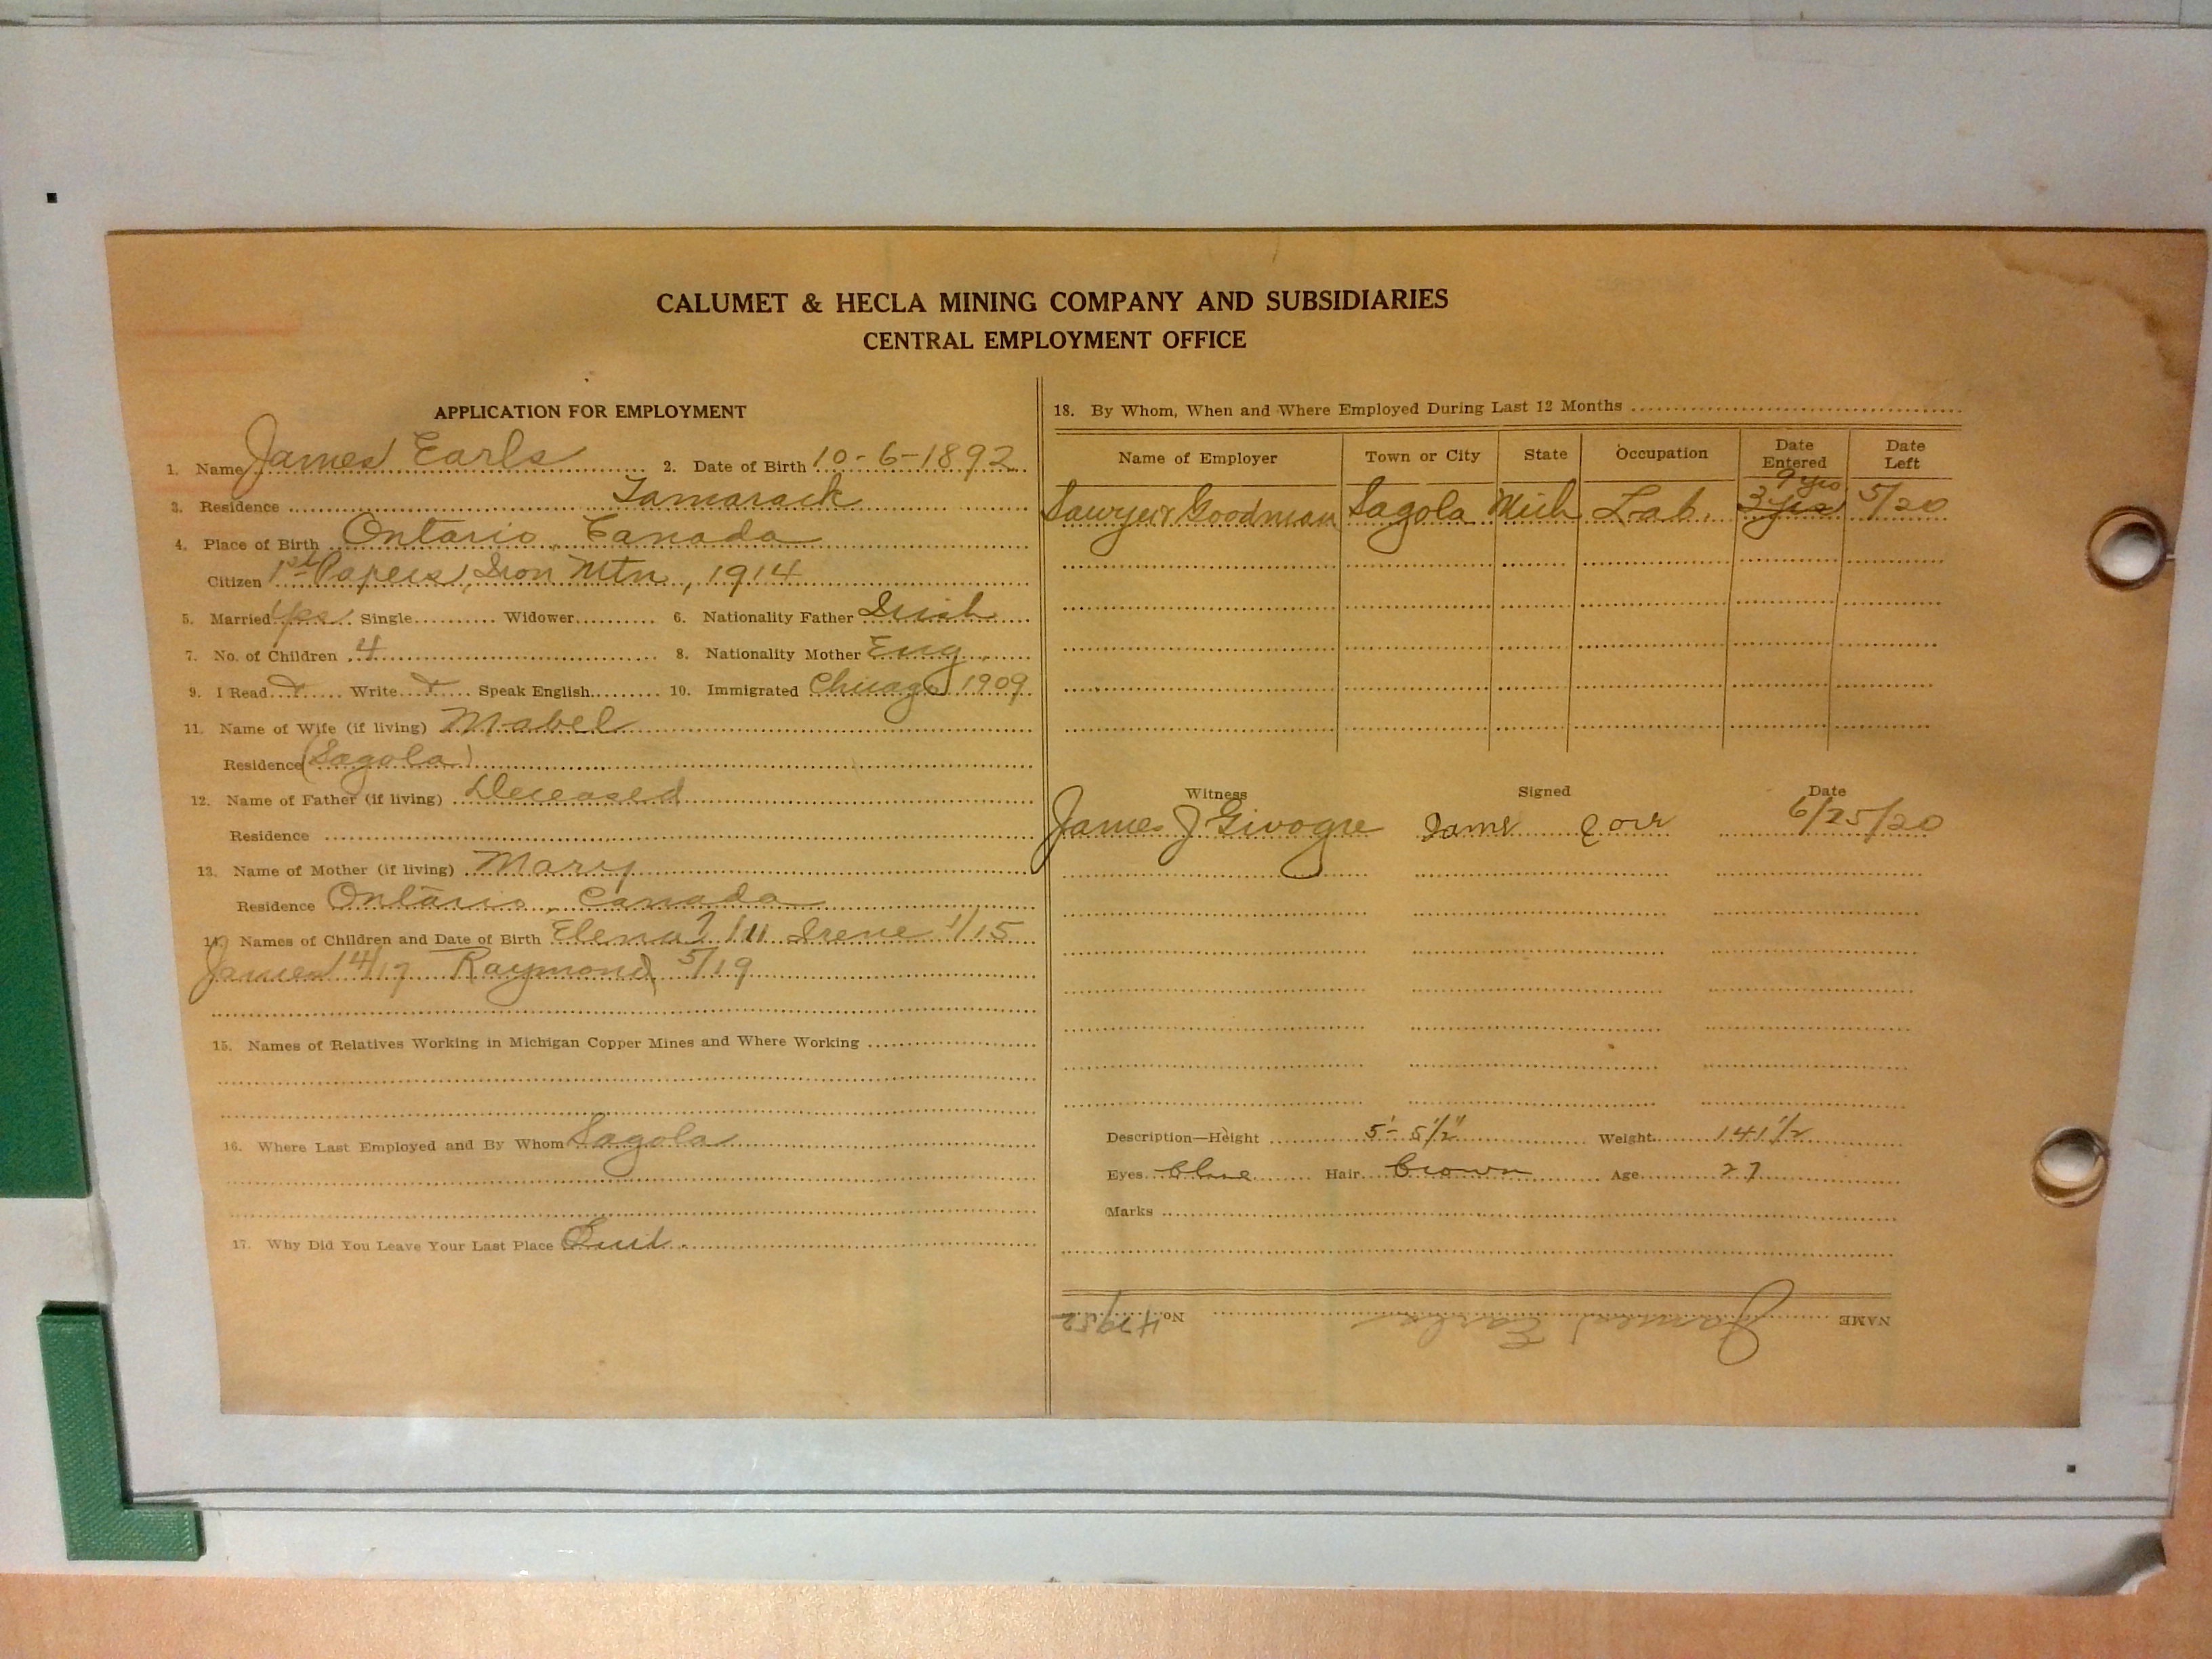 CALUMET & HECLA MINING COMPANY AND SUBSIDIARIES
CENTRAL EMPLOYMENT OFFICE
APPLICATION FOR EMPLOYMENT
1. Name James Earls 2. Date of Birth 10-6-1892
3. Residence Tamarack
4. Place of Birth Ontario, Canada
Citizen 1st Papers, Iron Mtn, 1914
5. Married yes Single Widower 6. Nationality Father Irish
7. No. of Children 4 8. Nationality Mother Eng.
9. I Read Write Speak English 10. Immigrated Chicago 1909
11. Name of Wife (if living) Mabel
Residence (Sagola)
12. Name of Father (if living) Deceased
Residence
13. Name of Mother (if living) Mary
Residence Ontario, Canada
14. Names of Children and Date of Birth Elena 7/11 Irene 1/15
James 4/17 Raymond 5/19
15. Names of Relatives Working in Michigan Copper Mines and Where Working
16. Where Last Employed and By Whom Sagola
17. Why Did You Leave Your Last Place Quit.
18. By Whom, When and Where Employed During Last 12 Months
Name of Employer Town or City State Occupation Date Entered Date Left
9 yrs
Sawyer Goodman Sagola Mich Lab. 3 yrs 5/20
Witness Signed Date
James J 6/25/20
Description—Height 5'- 5 1/2" Weight 141 1/2
Eyes blue Hair brown Age 27
Marks
NAME James Earls No. 47952